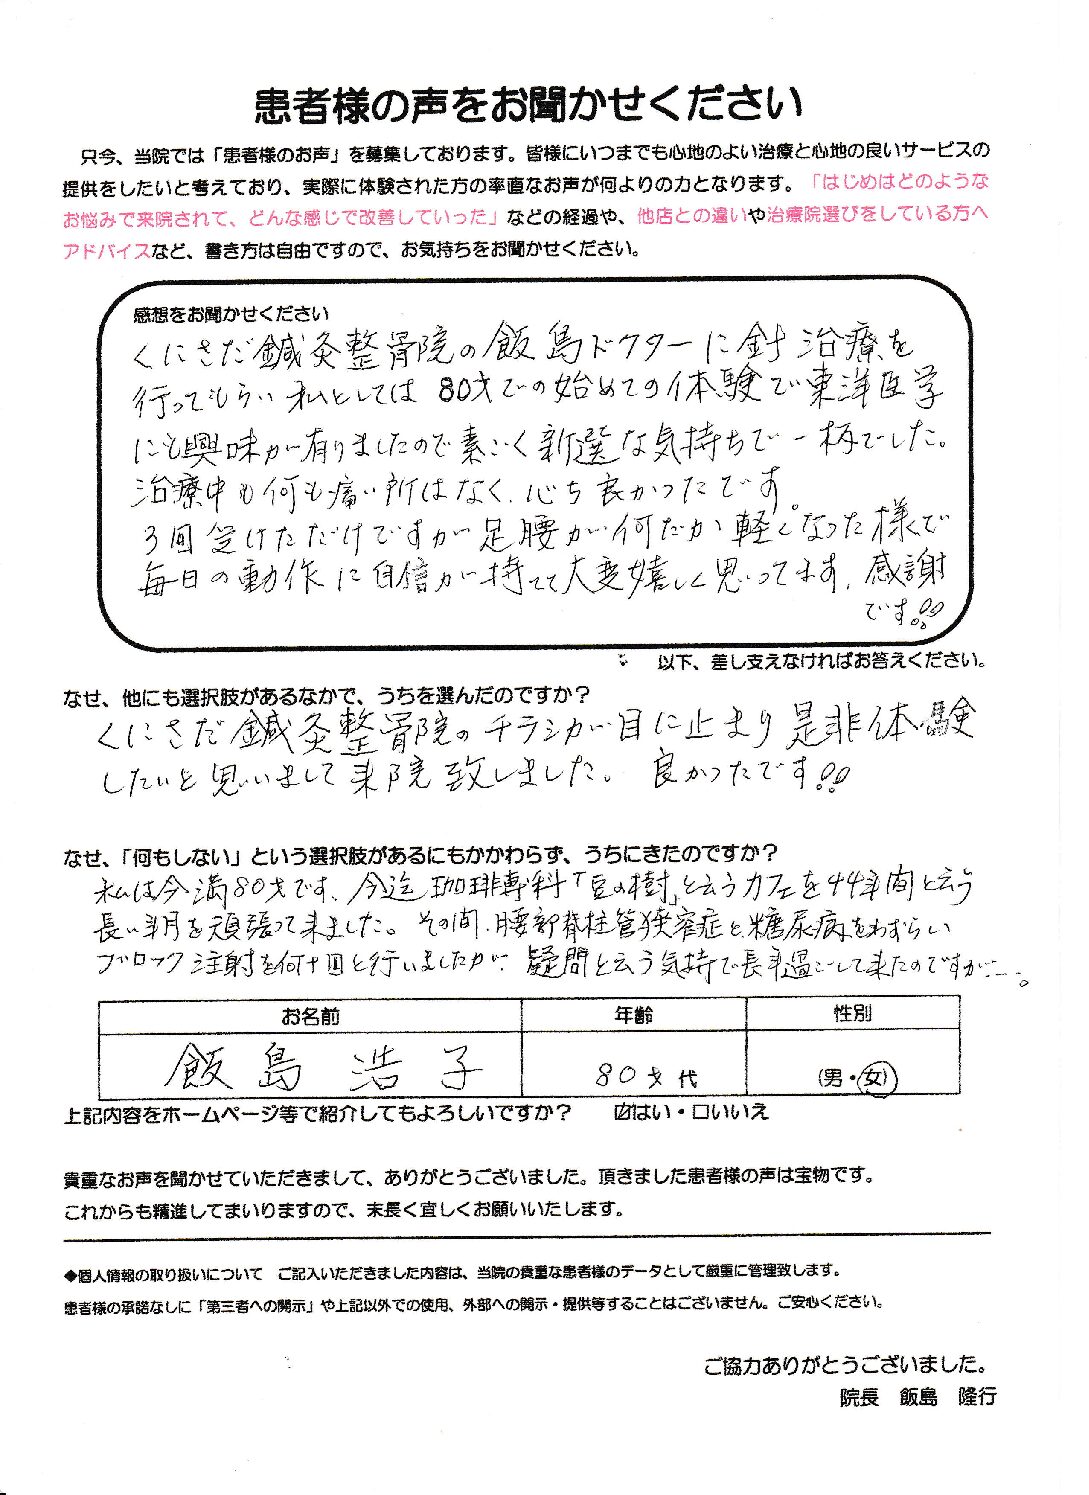 患者様の声をお聞かせください
只今、当院では「患者様のお声」を募集しております。皆様にいつまでも心地のよい治療と心地の良いサービスの
提供をしたいと考えており、実際に体験された方の率直なお声が何よりの力となります。「はじめはどのような
お悩みで来院されて、どんな感じで改善していった」などの経過や、他店との違いや治療院選びをしている方へ
アドバイスなど、書き方は自由ですので、お気持ちをお聞かせください。
感想をお聞かせください
くにさだ鍼灸整骨院の飯島ドクターに針治療を
行ってもらい私としては80才での始めての体験で東洋医学
にも興味が有りましたので素ごく新選な気持ちで一杯でした。
治療中も何も痛い所はなく、心ち良かったです。
3回受けただけですが足腰が何だか軽くなった様で
毎日の動作に自信が持てて大変嬉しく思ってます。感謝
です!!
以下、差し支えなければお答えください。
なぜ、他にも選択肢があるなかで、うちを選んだのですか?
くにさだ鍼灸整骨院のチラシが目に止まり是非体験
したいと思いまして来院致しました。良かったです!!
なぜ、「何もしない」という選択肢があるにもかかわらず、うちにきたのですか?
私は今満80才です、今迄珈琲専科「豆の樹」と云うカフェを44年間と云う
長い年月を頑張って来ました。その間、腰部脊柱管狭窄症と、糖尿病をわずらい
ブロック注射を何十回と行いましたが、疑問と云う気持で長年過ごして来たのですが…。
お名前 年齢 性別
飯島 浩子 80才代 (男・女)
上記内容をホームページ等で紹介してもよろしいですか? ☑はい・□いいえ
貴重なお声を聞かせていただきまして、ありがとうございました。頂きました患者様の声は宝物です。
これからも精進してまいりますので、末長く宜しくお願いいたします。
◆個人情報の取り扱いについて ご記入いただきました内容は、当院の貴重な患者様のデータとして厳重に管理致します。
患者様の承諾なしに「第三者への開示」や上記以外での使用、外部への開示・提供等することはございません。ご安心ください。
ご協力ありがとうございました。
院長 飯島 隆行